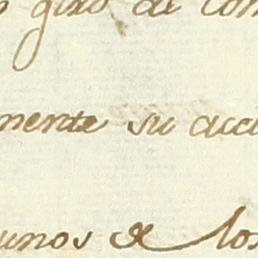 giro de con
mente su acci
unos de los